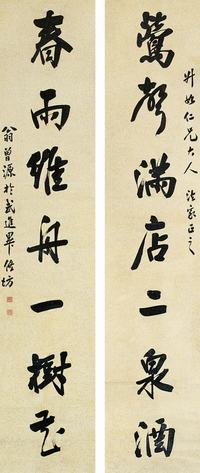 仁兄大人 法家正之
鶯聲滿店二泉酒
春雨維舟一樹花
翁曾源於武進